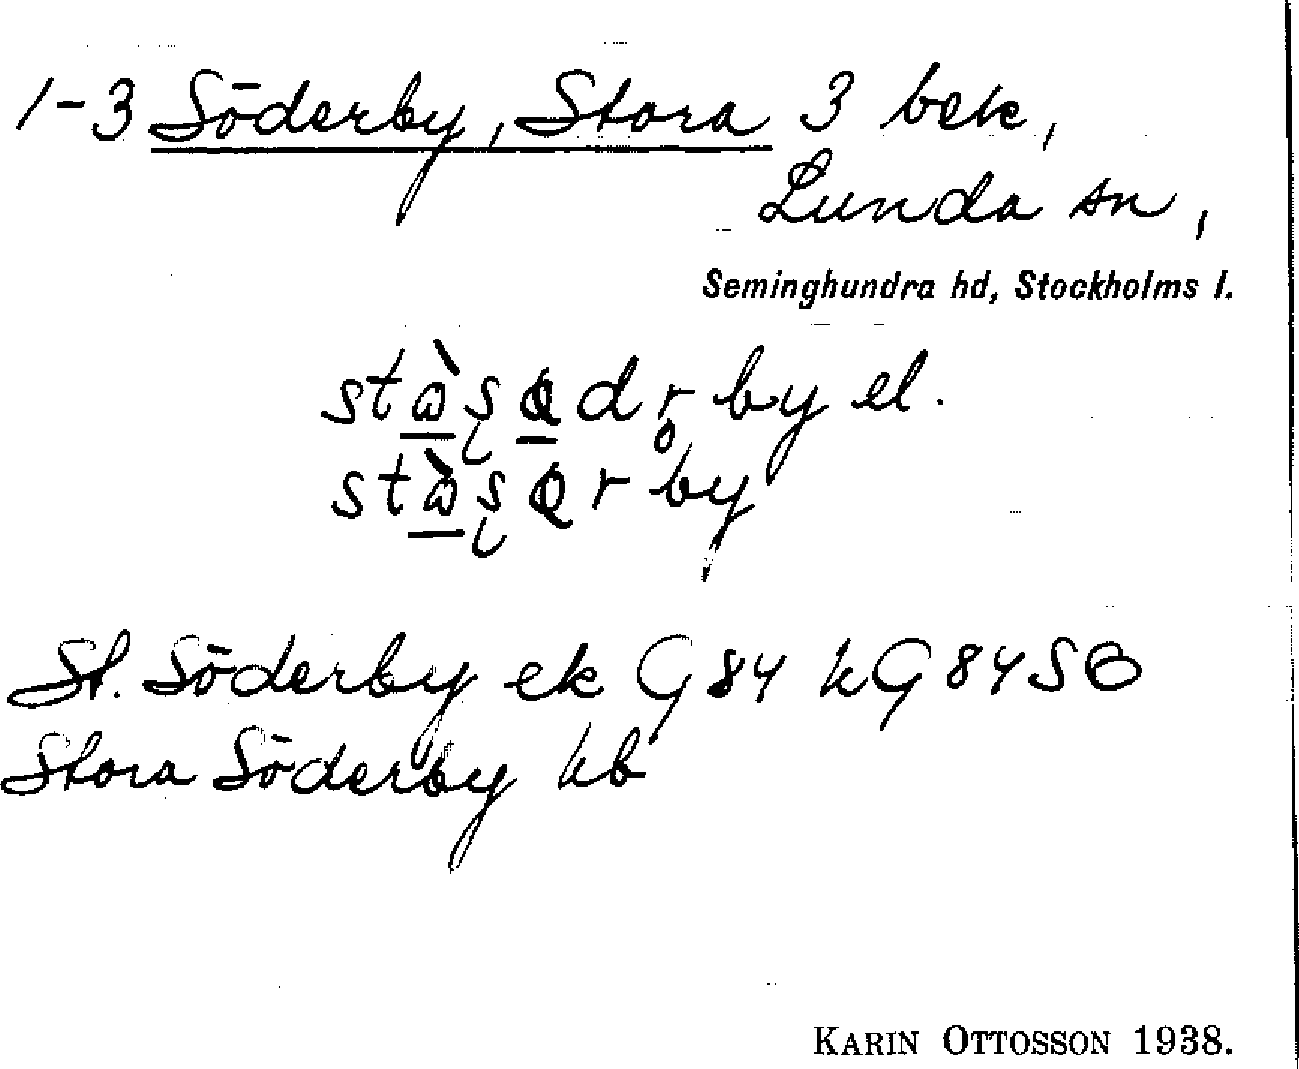 1-3 Söderby, Stora 3 bek,
Lunda sn,
Seminghundra hd, Stockholms l.
el.
St. Söderby ek G 84 kG 84 SO
Stora Söderby kb
KARIN OTTOSSON 1938.